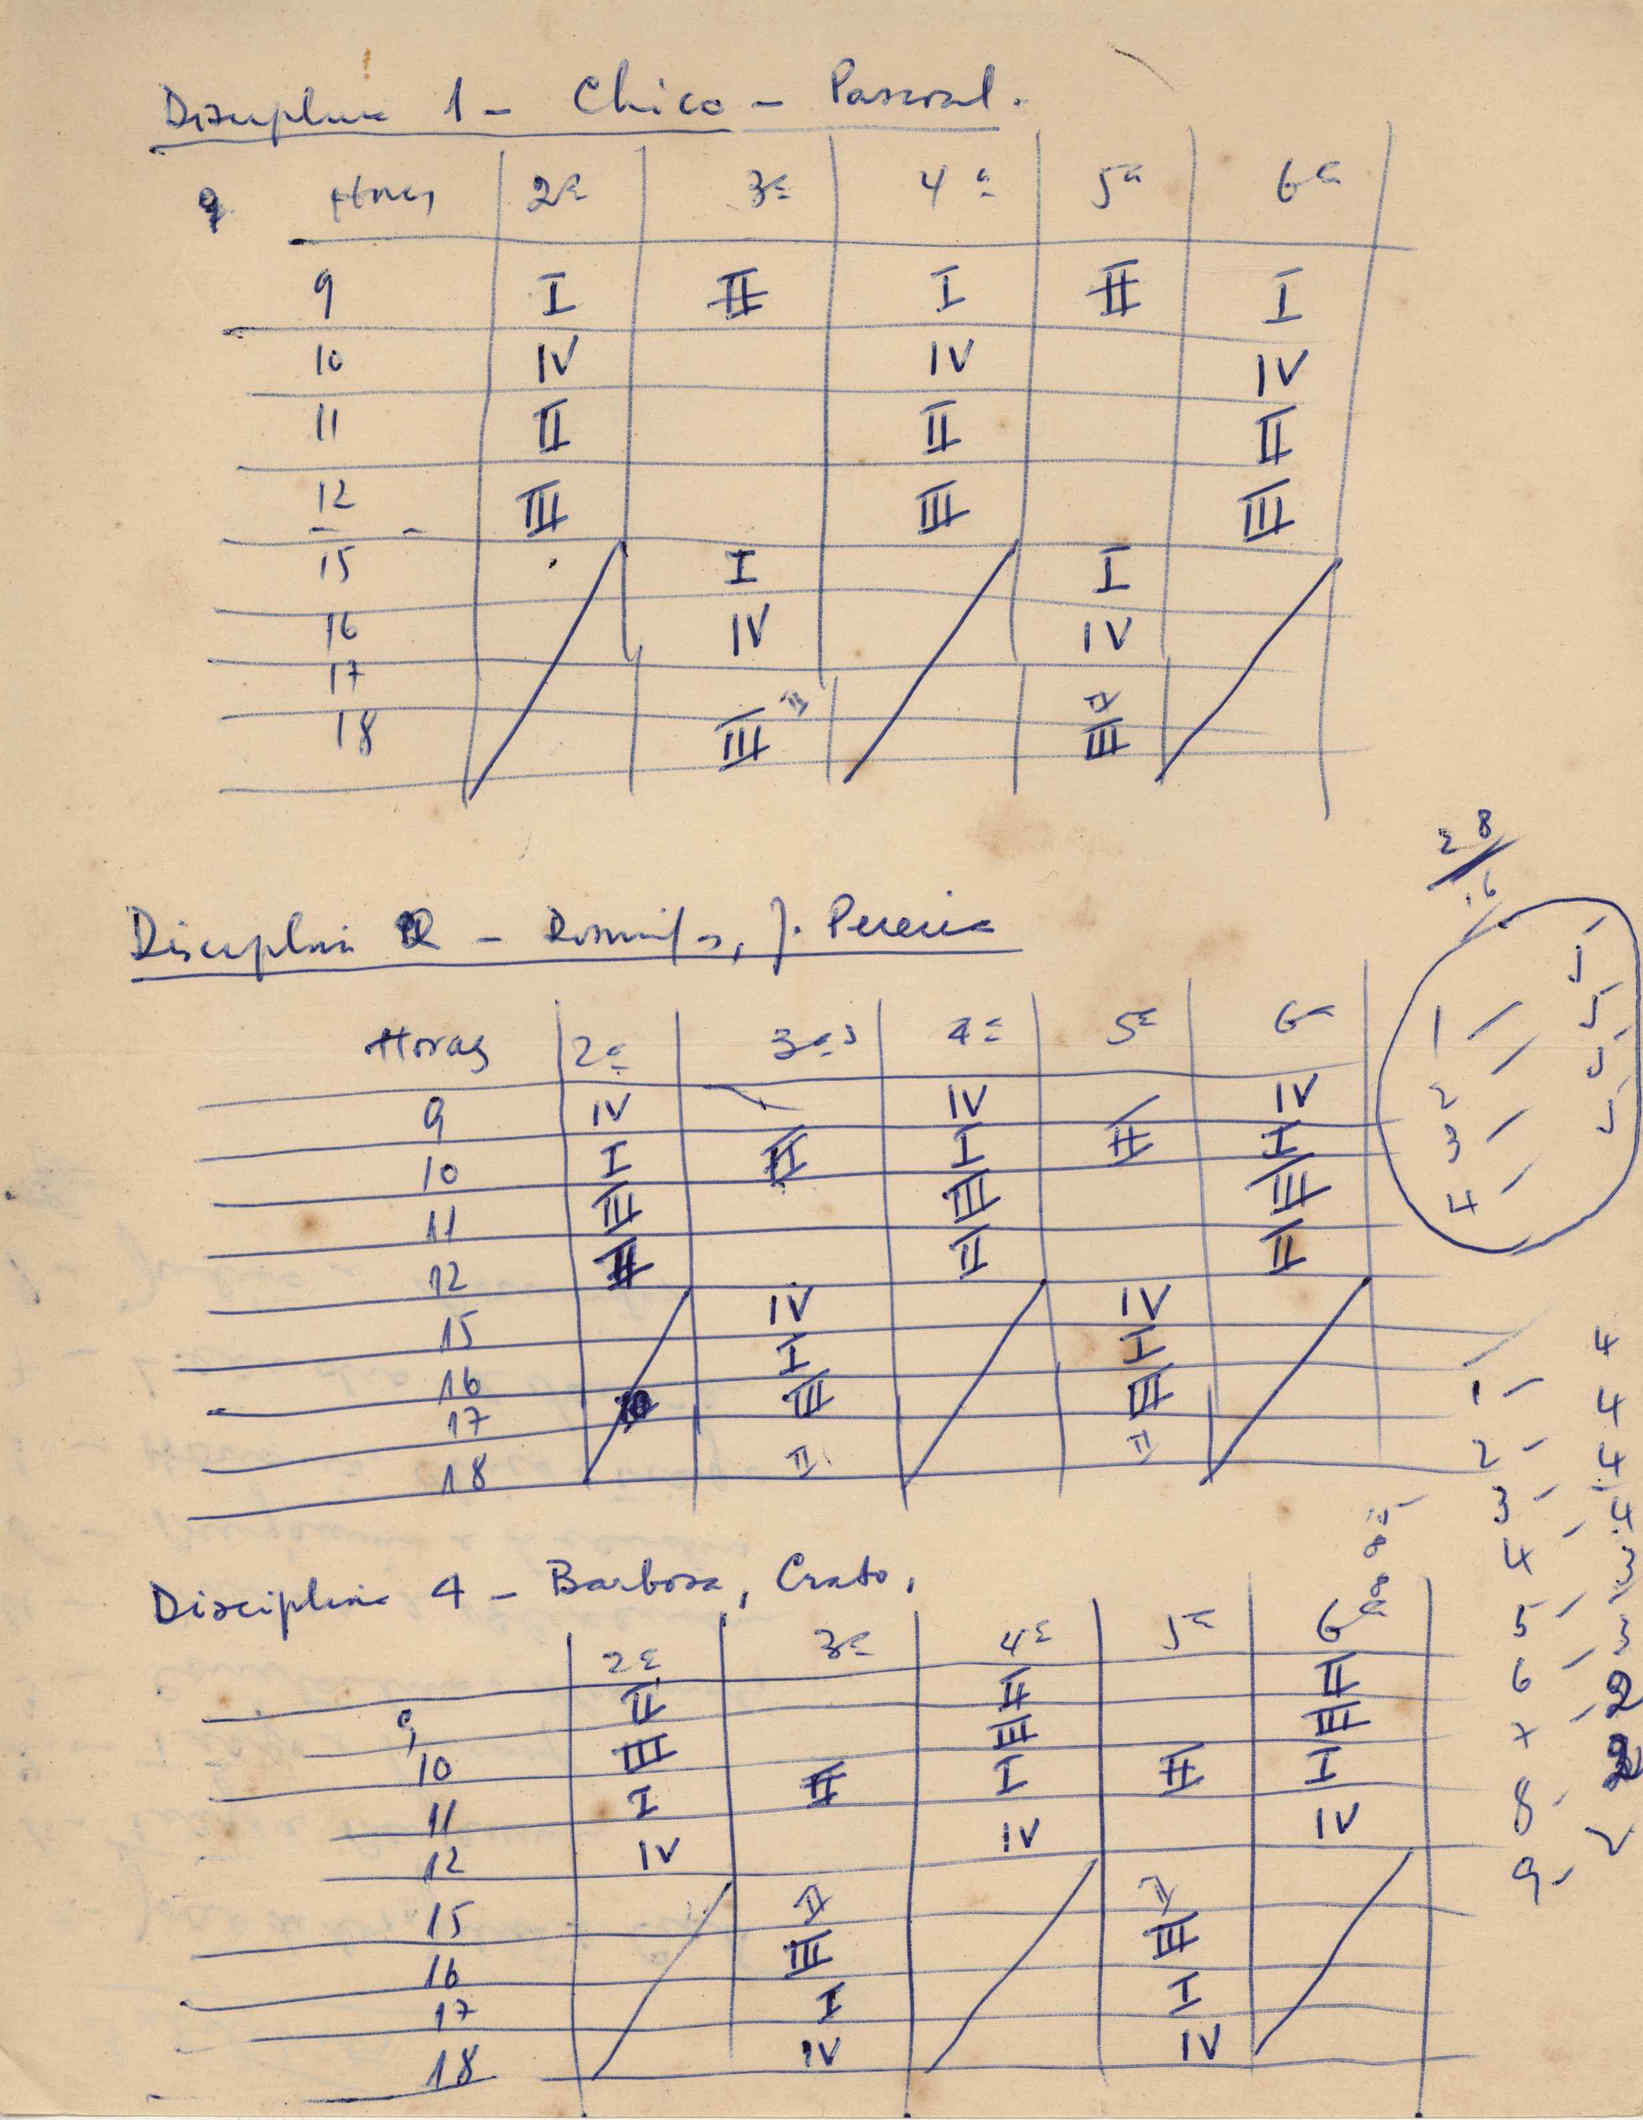 Disciplina 1 - Chico - Pascoal.
9 Horas 2ª 3ª 4ª 5ª 6ª
9 I II I II I
10 IV IV IV
11 II II II
12 III III III
15 I I
16 IV IV
17 II II
18 III III
28
16
Disciplina 2 - J. Pereira
Horas 2ª 3ª 4ª 5ª 6ª
9 IV IV IV
10 I II I II I
11 III III III
12 II II II
15 IV IV
16 I I
17 III III
18 II II
1 - 5
2 - 5
3 - 5
4 - 5
Disciplina 4 - Barbosa, Crato,
2ª 3ª 4ª 5ª 6ª
9 II II II
10 III III III
11 I II I II I
12 IV IV IV
15 II II
16 III III
17 I I
18 IV IV
4
1 - 4
2 - 4
3 - 4
4 - 3
5 - 3
6 - 2
7 - 2
8 - 2
9 -